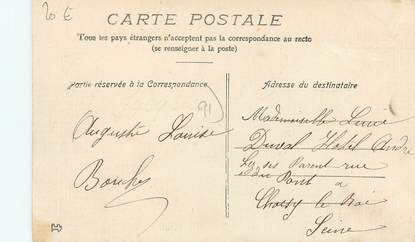 20 E
CARTE POSTALE
Tous les pays étrangers n'acceptent pas la correspondance au recto
(se renseigner à la poste)
Partie réservée à la Correspondance
Adresse du destinataire
91
Auguste Louise
Mademoiselle
Duval Hotel
Parent rue
du Pont
à
Choisy le Roi
Seine